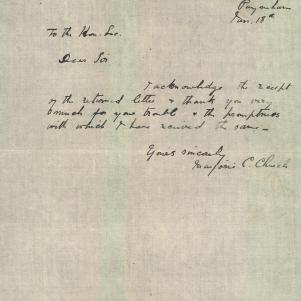 Payneham
Jan. 18th
To the Hon. Sec.
Dear Sir
I acknowledge the receipt
of the returned letter & thank you very
much for your trouble & the promptness
with which I have received the same –
Yours sincerely
Marjorie C.